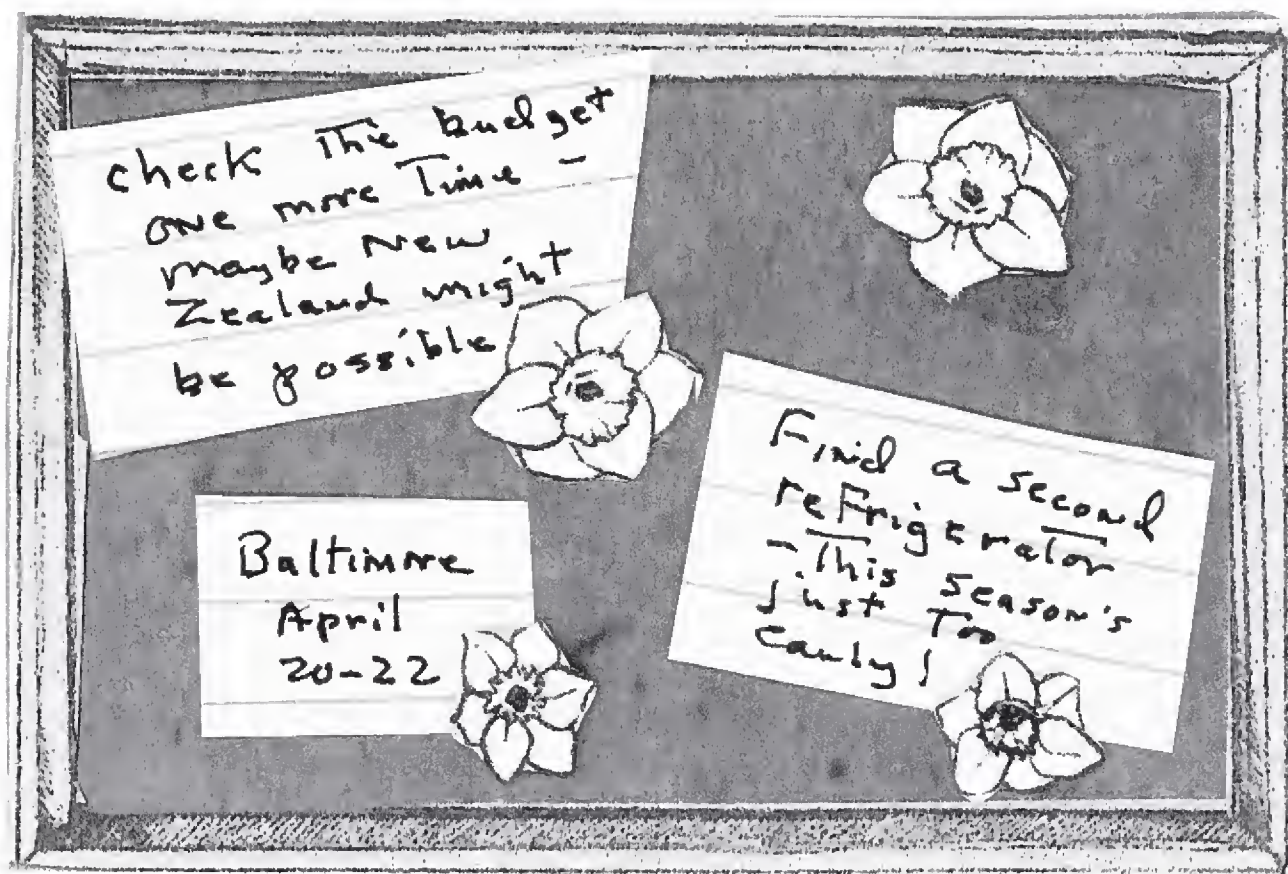 check The budget
one more Time -
maybe New
Zealand might
be possible
Baltimore
April
20-22
Find a second
reFrigerator
- This season's
just Too
early!